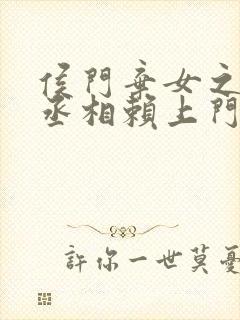 侯門棄女之
丞相賴上門
許你一世莫憂